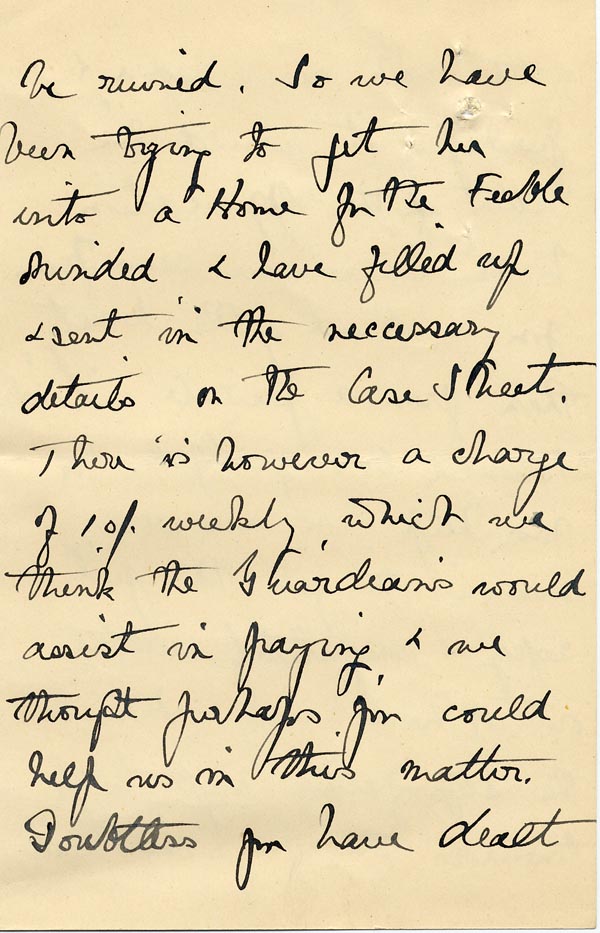 be ruined. So we have
been trying to get her
into a Home for the Feeble
Minded & have filled up
& sent in the neccessary
details on the Case Sheet.
There is however a charge
of 10/. weekly, which we
think the Guardians would
assist in paying, & we
thought perhaps you could
help us in this matter.
Doubtless you have dealt